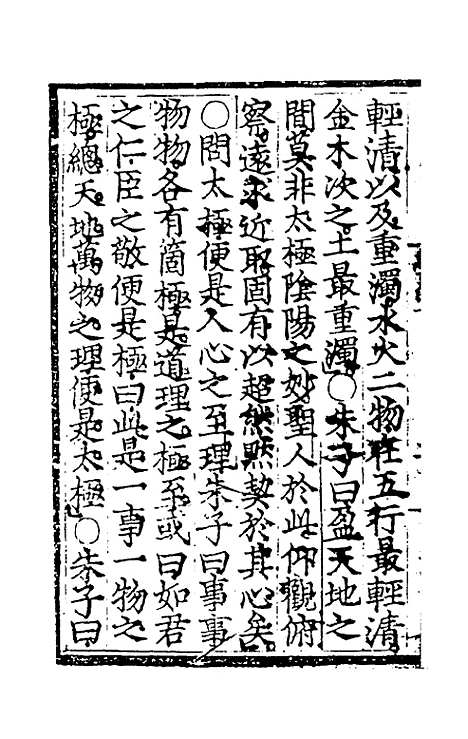 輕清以及重濁水火二物在五行最輕清
金木次之土最重濁〇朱子曰盈天地之
間莫非太極陰陽之妙聖人於此仰觀俯
察遠求近取固有以超然默契於其心矣
〇問太極便是人心之至理朱子曰事事
物物各有箇極是道理之極至或曰如君
之仁臣之敬便是極曰此是一事一物之
極總天地萬物之理便是太極〇朱子曰